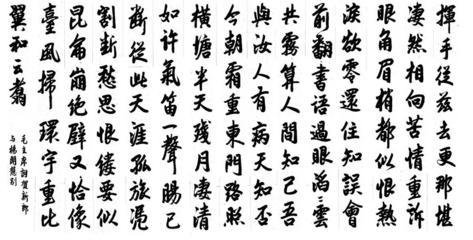 揮手從茲去更那堪
凄然相向苦情重訴
眼角眉梢都似恨熱
淚欲零還住知誤會
前翻書語過眼滔〻雲
共霧算人間知己吾
與汝人有病天知否
今朝霜重東門路照
橫塘半天殘月凄清
如許氣笛一聲腸已
斷從此天涯孤旅憑
割斷愁思恨縷要似
昆侖崩絕壁又恰像
臺風掃環宇重比
翼和云翥
毛主席詞賀新郎
与楊開慧别